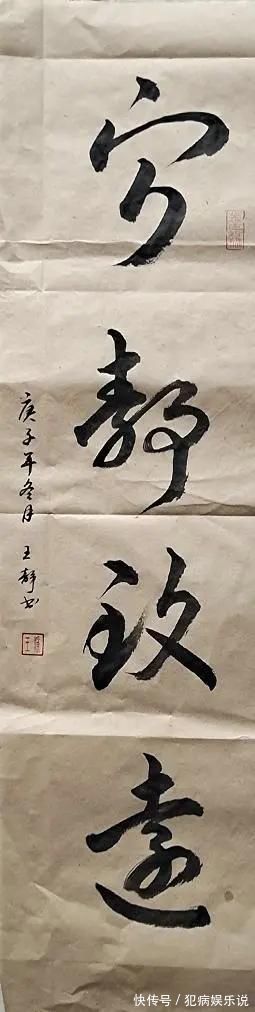 宁静致远
庚子年冬月 王静书
快传号/犯病娱乐说